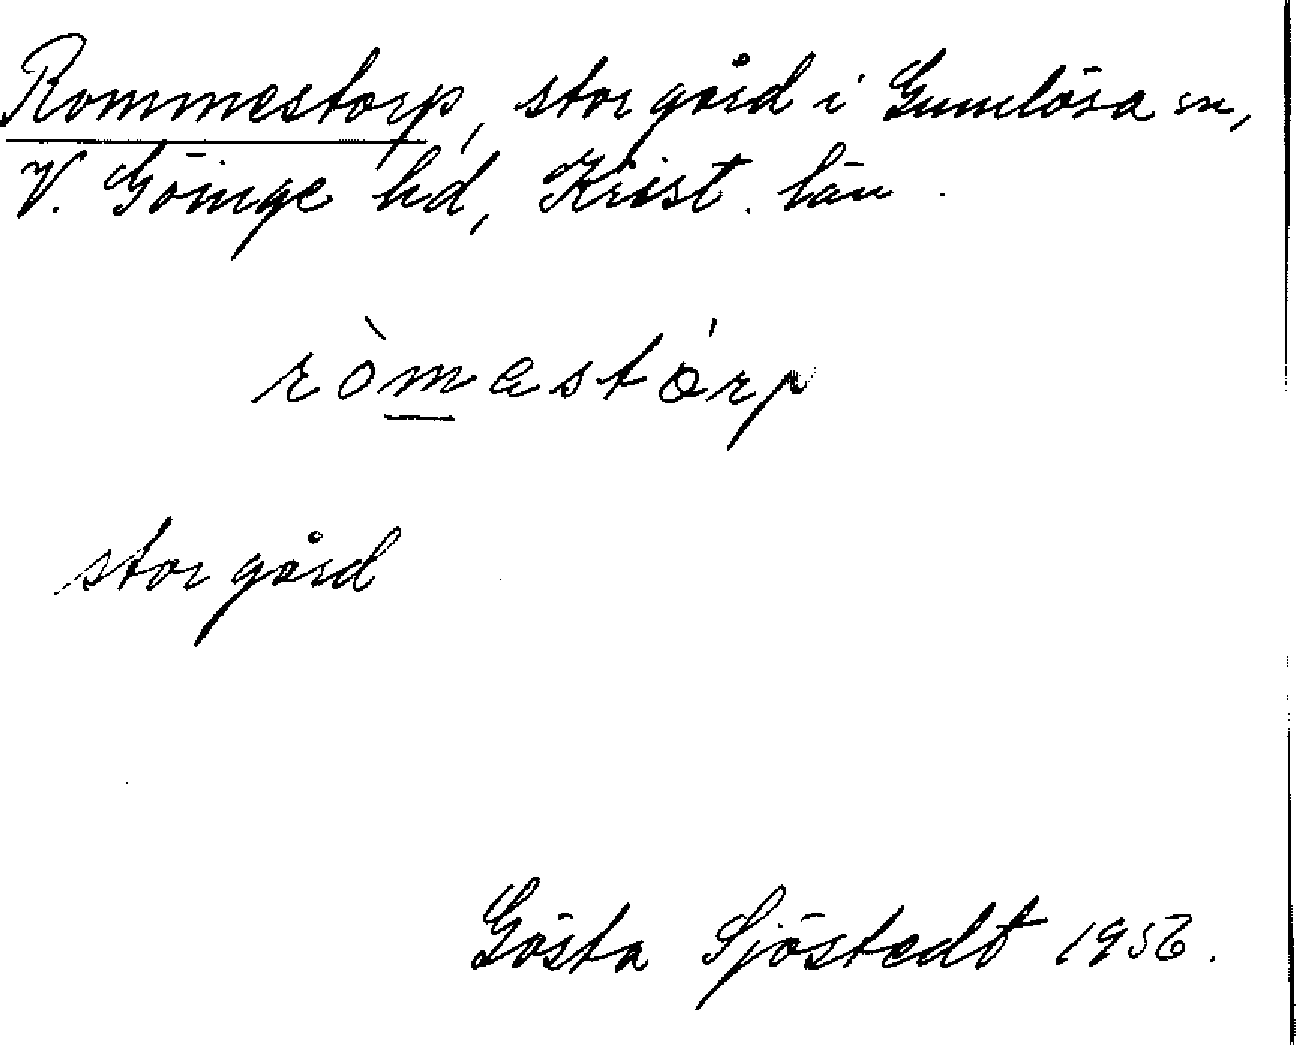 Rommestorp, storgård i Gumlösa sn,
V. Göinge hd, Krist. län.
ròmestórp
storgård
Gösta Sjöstedt 1956.